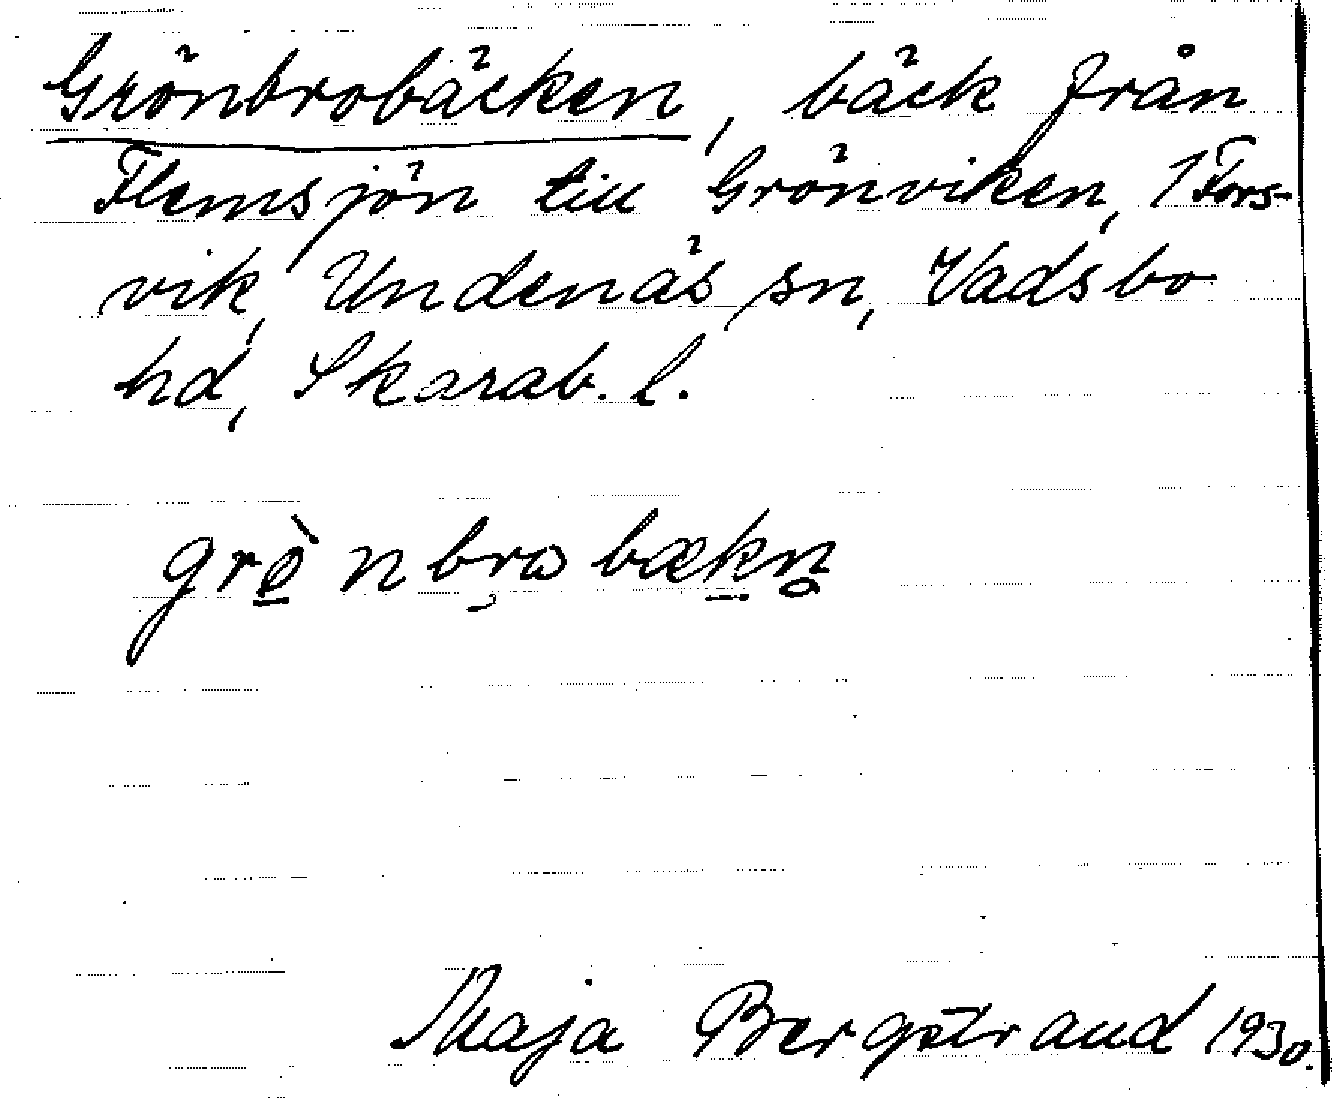 Grönbrobäcken, bäck från
Flemsjön till Grönviken, 1 Fors-
vik, Undenäs sn, Vadsbo
hd, Skarab. l.
grø̀nbrωbækn̥
Maja Bergstrand 1930.